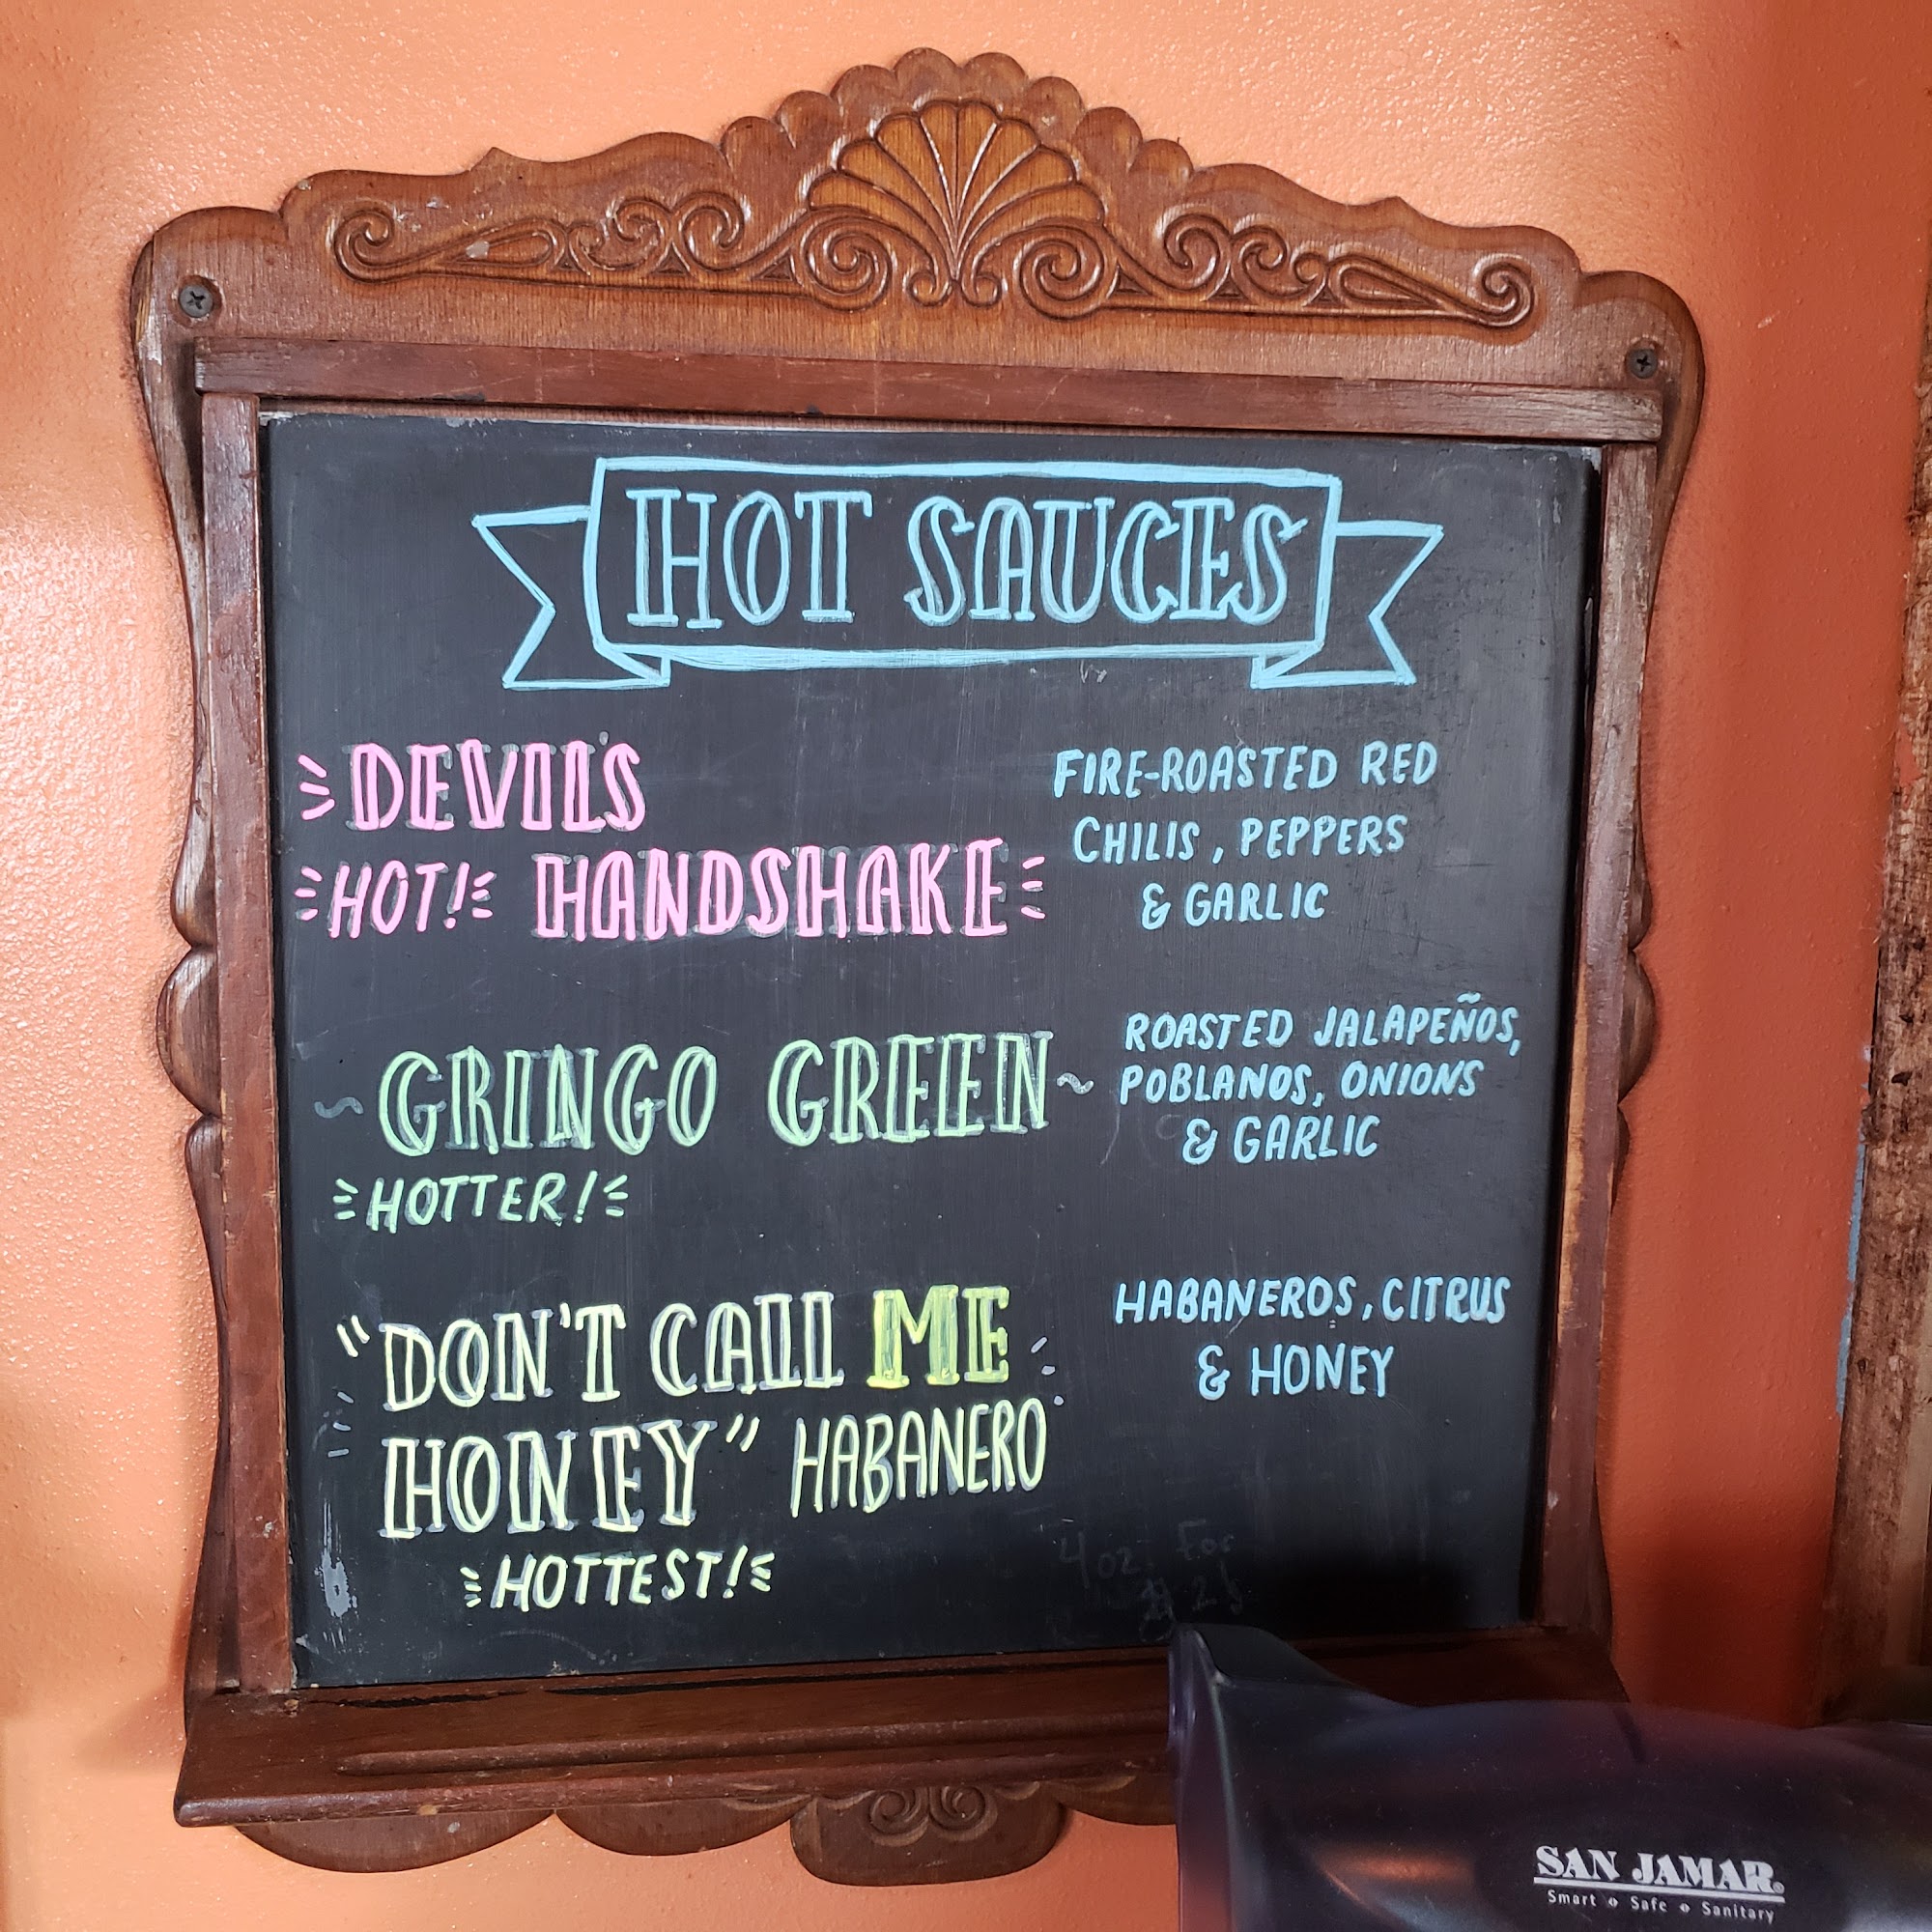 HOT SAUCES
DEVILS
HOT! HANDSHAKE
FIRE-ROASTED RED
CHILIS, PEPPERS
& GARLIC
~ GRINGO GREEN ~
HOTTER!
ROASTED JALAPEÑOS,
POBLANOS, ONIONS
& GARLIC
"DON'T CALL ME
HONEY" HABANERO
HOTTEST!
HABANEROS, CITRUS
& HONEY
4oz For
SAN JAMAR®
Smart Safe Sanitary